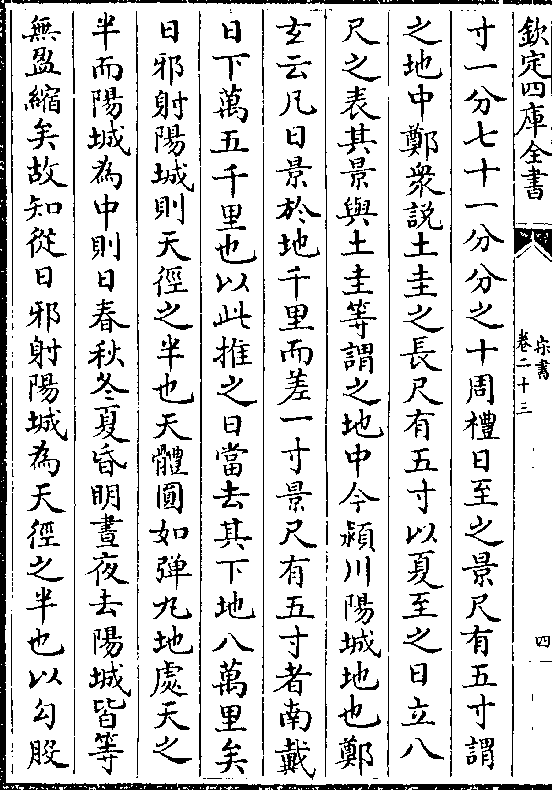 欽定四庫全書
宋書
卷二十三
四
寸一分七十一分分之十周禮日至之景尺有五寸謂
之地中鄭衆說土圭之長尺有五寸以夏至之日立八
尺之表其景與土圭等謂之地中今潁川陽城地也鄭
玄云凡日景於地千里而差一寸景尺有五寸者南戴
日下萬五千里也以此推之日當去其下地八萬里矣
日邪射陽城則天徑之半也天體圓如弹丸地處天之
半而陽城為中則日春秋冬夏昏明晝夜去陽城皆等
無盈縮矣故知從日邪射陽城為天徑之半也以勾股